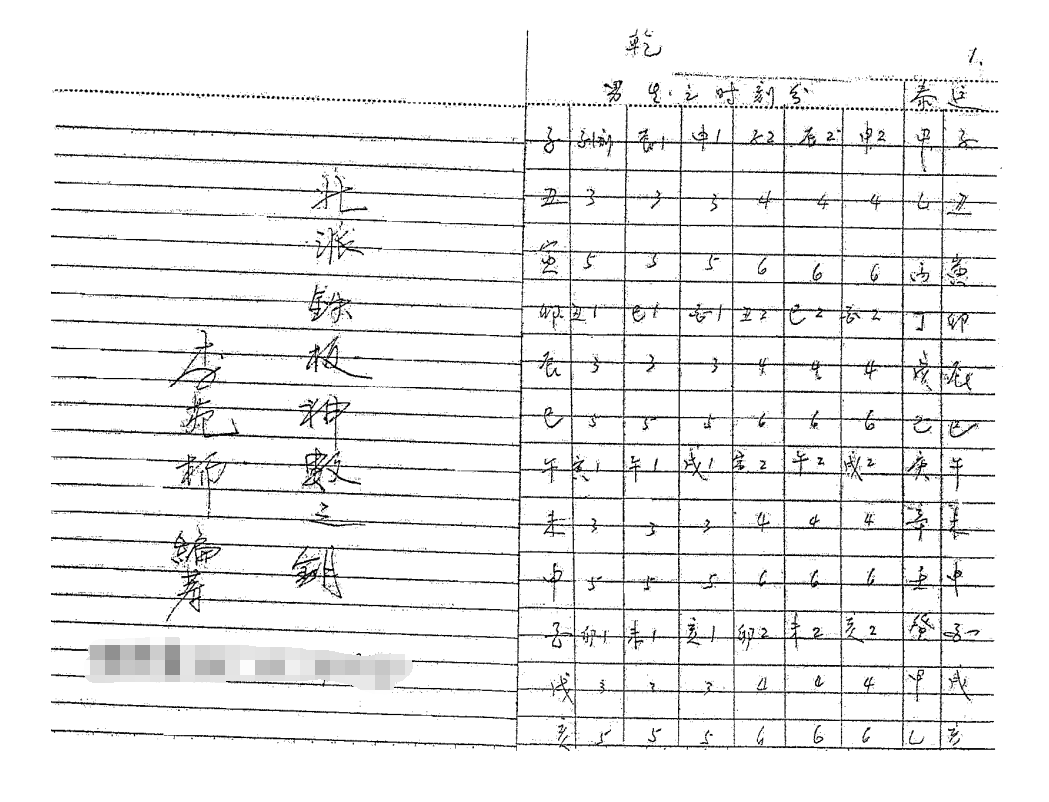 乾
1.
男生之时刻分 泰运
子 子初刻 辰1 申1 子2 辰2 申2 甲 子
丑 3 3 3 4 4 4 乙 丑
寅 5 5 5 6 6 6 丙 寅
卯 丑1 巳1 2 丑2 巳2 2 丁 卯
辰 3 3 3 4 4 4 戊 辰
巳 5 5 5 6 6 6 己 巳
午 1 午1 戌1 2 午2 戌2 庚 午
未 3 3 3 4 4 4 辛 未
申 5 5 5 6 6 6 壬 申
子 卯1 未1 亥1 卯2 未2 亥2 癸
戌 3 3 3 4 4 4 甲 戌
亥 5 5 5 6 6 6 乙 亥
北派铁板神数之钥
李 编寿